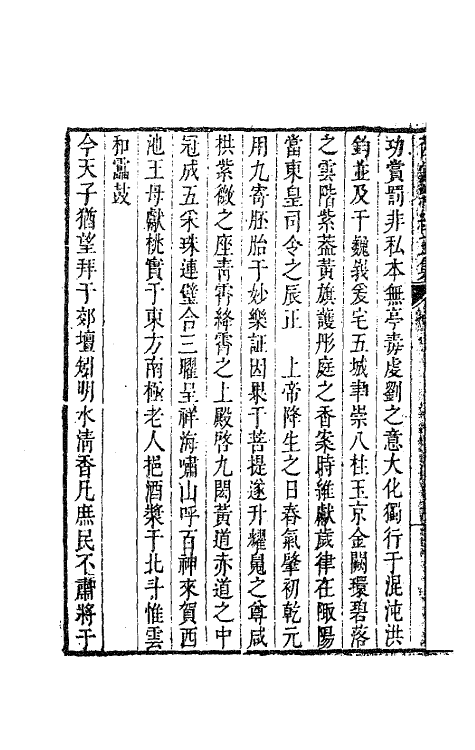 功賞罰非私本無亭毒虔劉之意大化獨行于混沌洪
鈞並及于巍峩爰宅五城聿崇八柱玉京金闕環碧落
之雲階紫蓋黃旗護彤庭之香案時維獻歲律在陬陽
當東皇司令之辰正　上帝降生之日春氣肇初乾元
用九寄胚胎于妙樂証因果于菩提遂升耀䰟之尊咸
拱紫微之座靑霄絳霄之上殿啓九閎黃道赤道之中
冠成五采珠連璧合三曜呈祥海嘯山呼百神來賀西
池王母獻桃實于東方南極老人挹酒漿于北斗惟雲
和靁鼓
今天子猶望拜于郊壇矧明水淸香凡庶民不肅將于